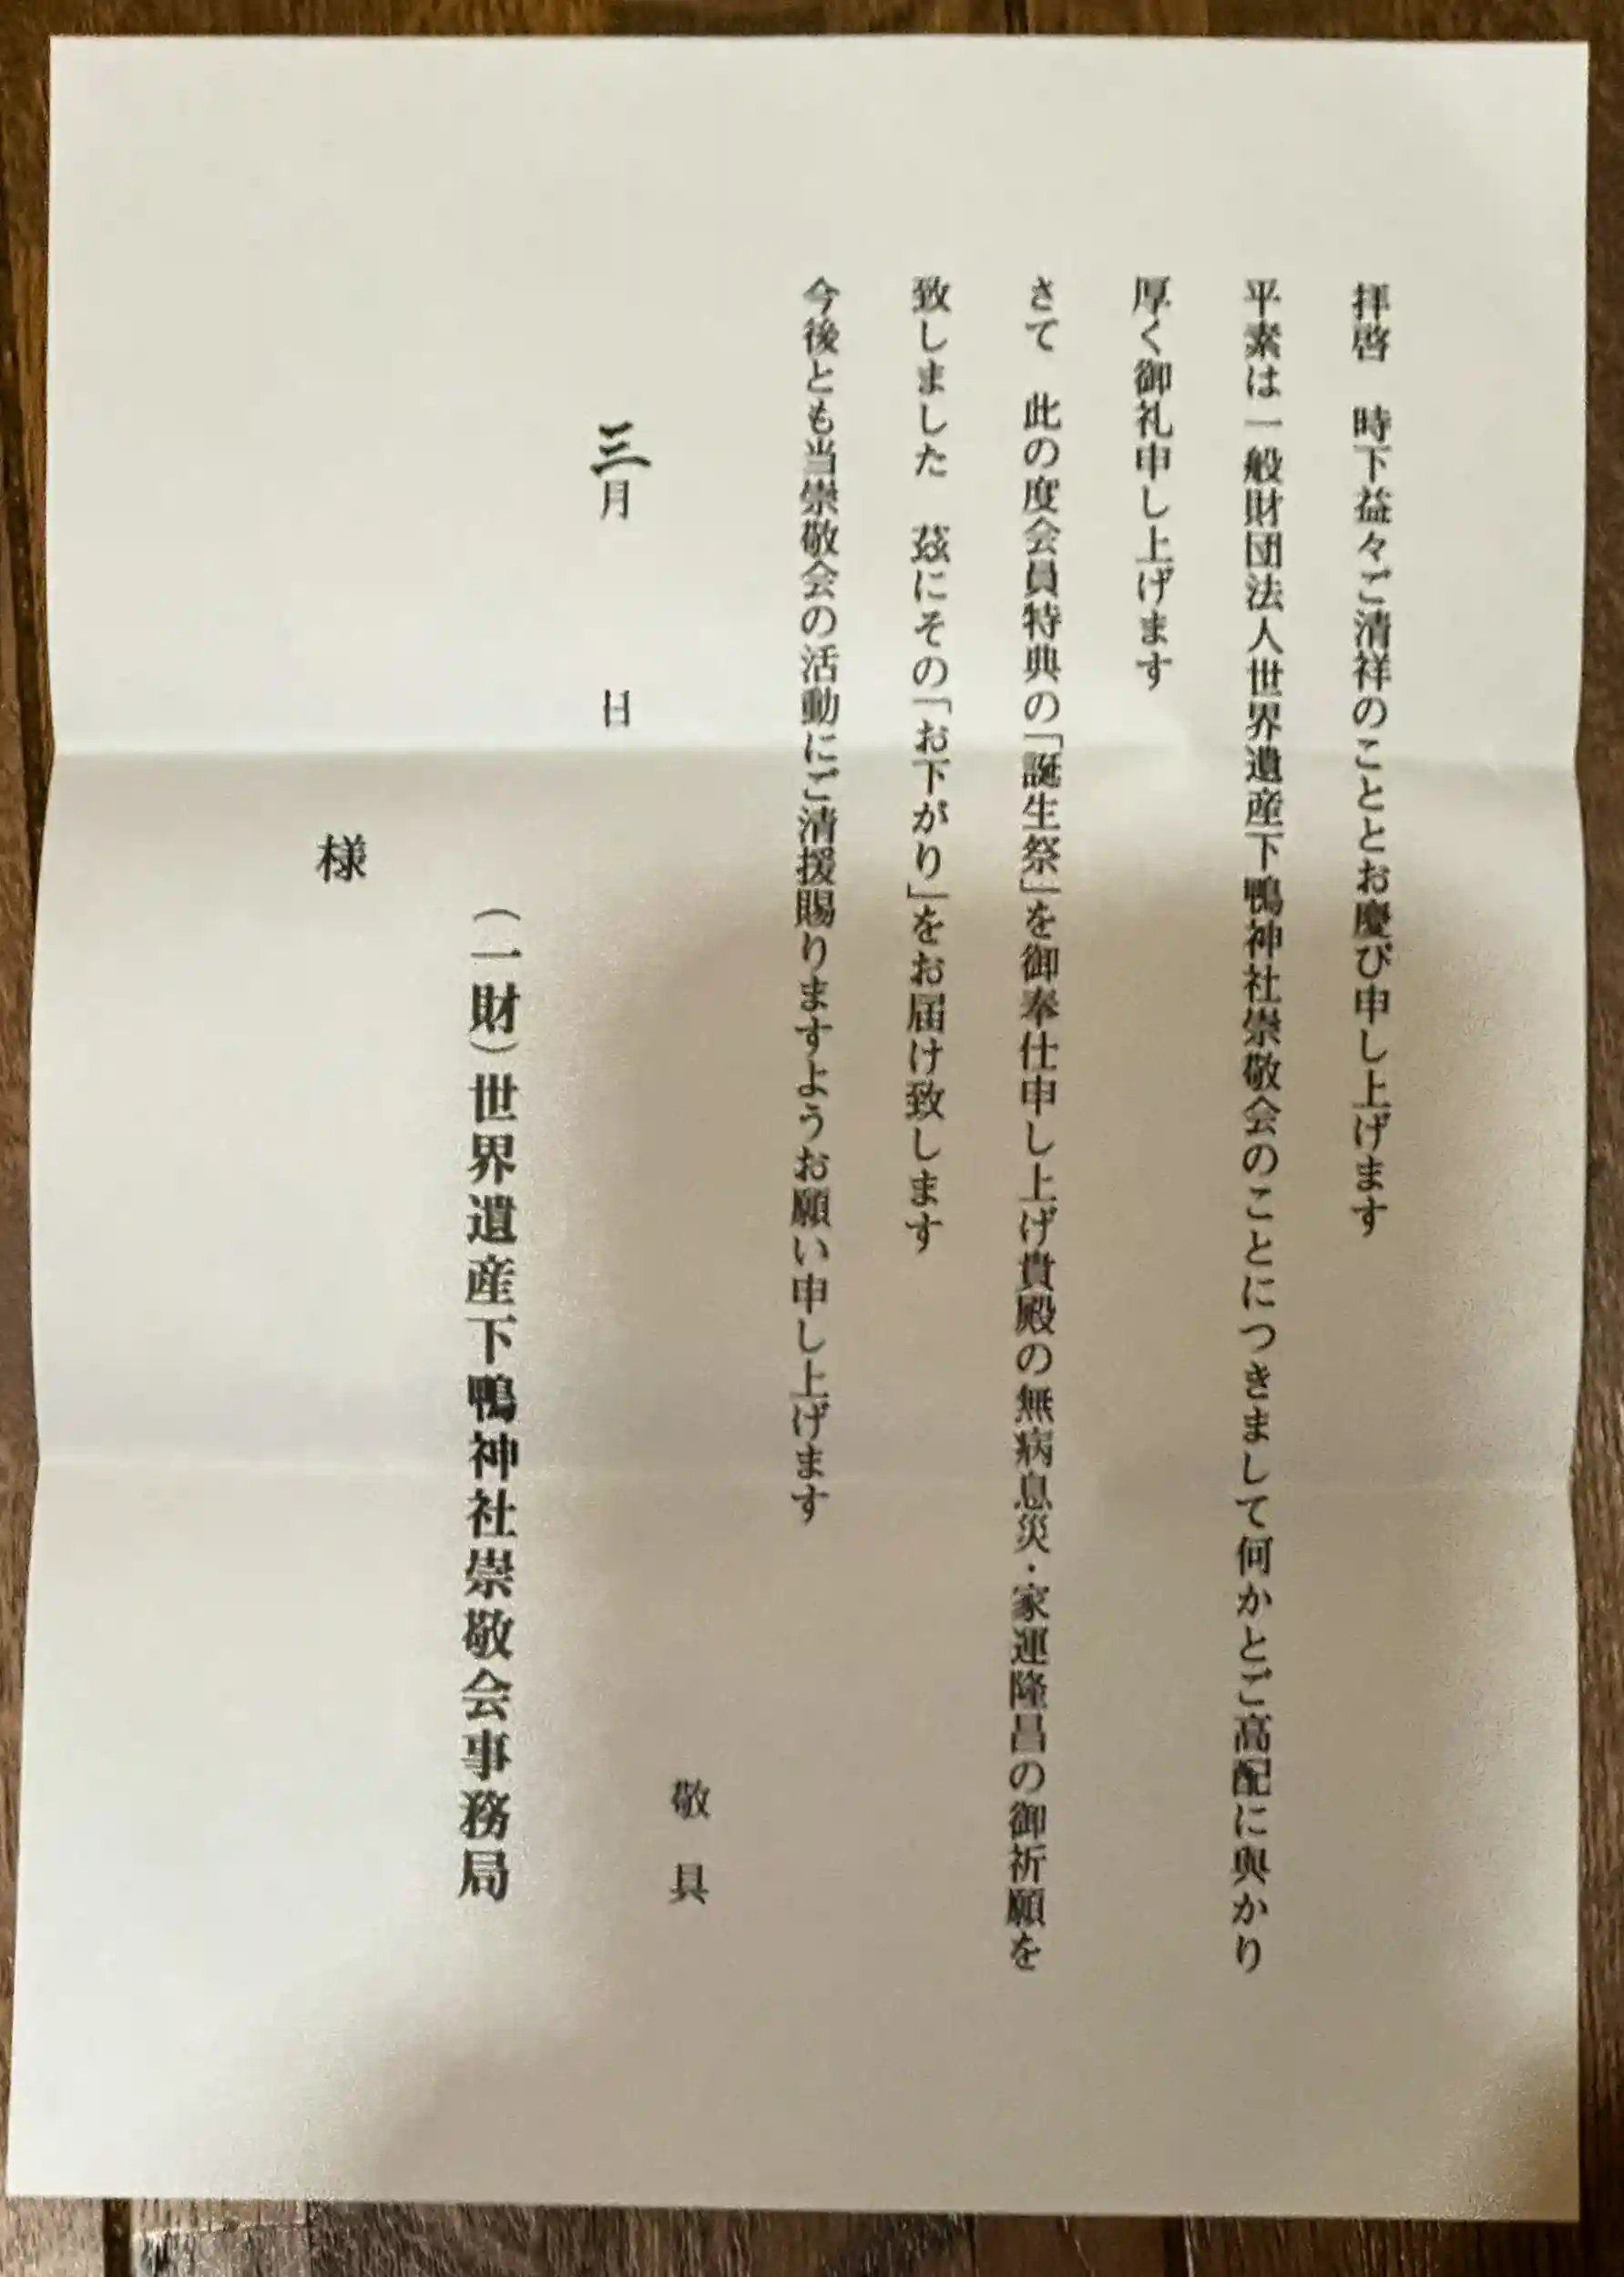 拝啓　時下益々ご清祥のこととお慶び申し上げます
平素は一般財団法人世界遺産下鴨神社崇敬会のことにつきまして何かとご高配に与かり
厚く御礼申し上げます
さて　此の度会員特典の「誕生祭」を御奉仕申し上げ貴殿の無病息災・家運隆昌の御祈願を
致しました　茲にその「お下がり」をお届け致します
今後とも当崇敬会の活動にご清援賜りますようお願い申し上げます
敬具
三月　　日
（一財）世界遺産下鴨神社崇敬会事務局
様